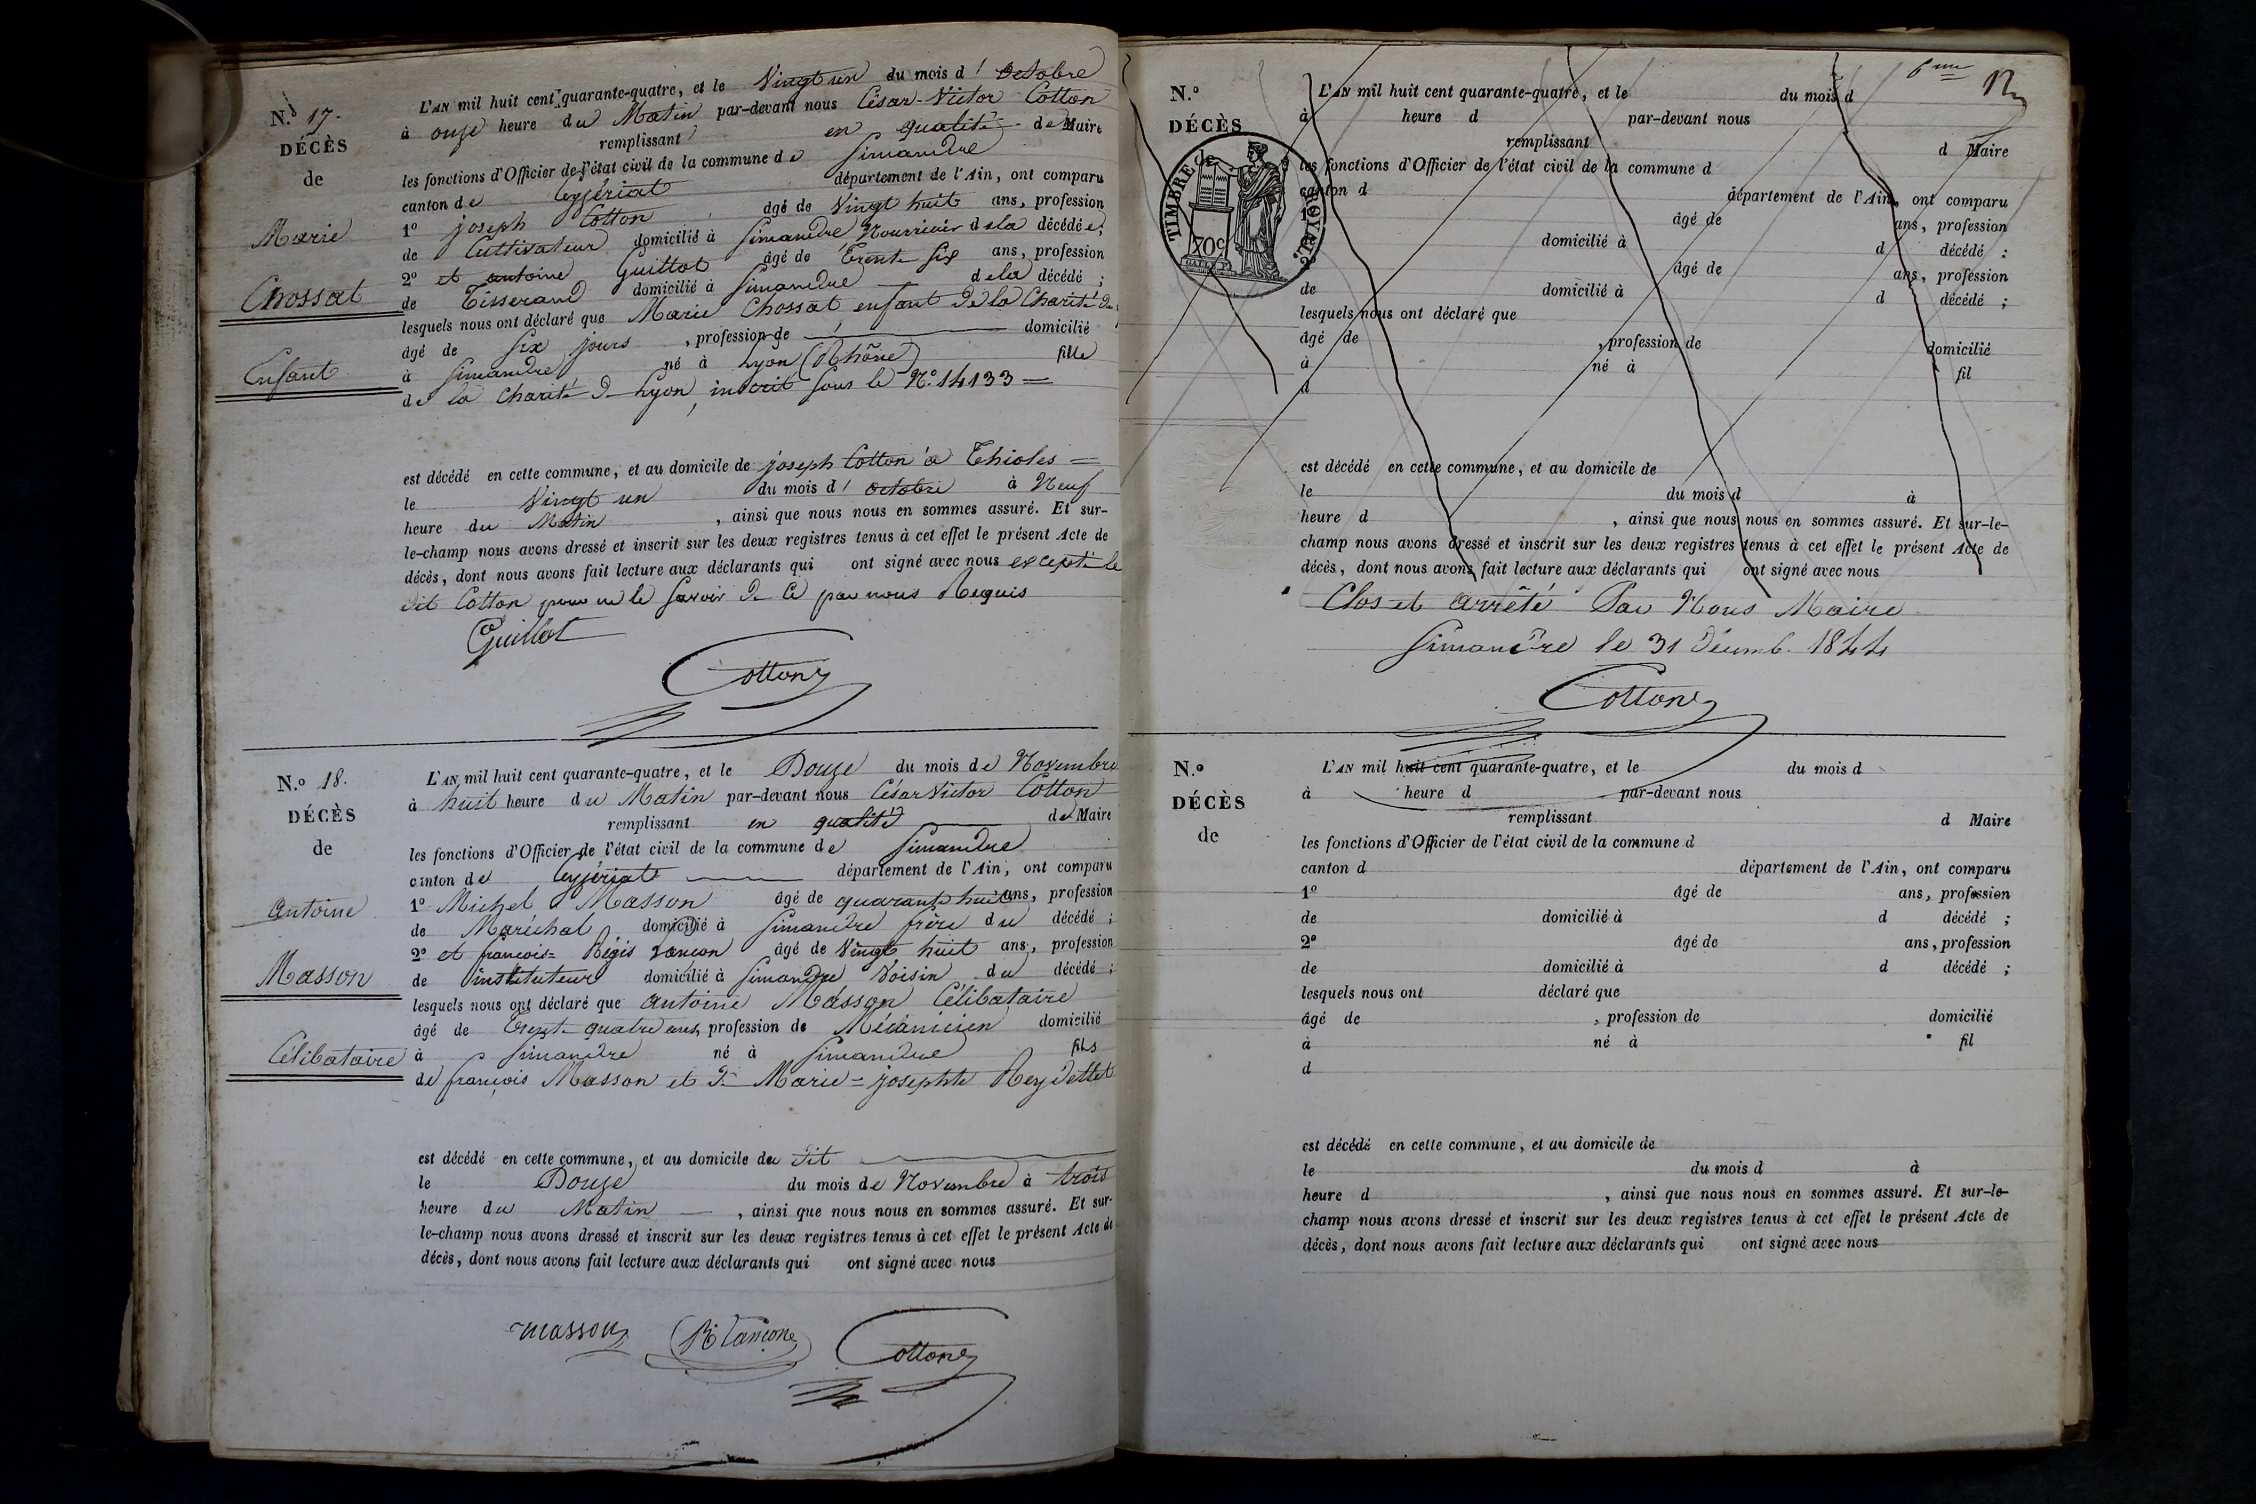 N.º 17.
DÉCÈS
de
Marie
Chossat
Enfant
L'AN mil huit cent quarante-quatre, et le Vingt un du mois d' Octobre
à onze heure du Matin par-devant nous César-Victor Cotton
remplissant en qualité de Maire
les fonctions d'Officier de l'état civil de la commune de Simandre
canton de Ceyzériat département de l'Ain, ont comparu
1º joseph Cotton âgé de Vingt huit ans, profession
de Cultivateur domicilié à Simandre Nourricier de la décédée;
2º et antoine Guillot âgé de Trente six ans, profession
de Tisserand domicilié à Simandre de la décédé ;
lesquels nous ont déclaré que Marie Chossat enfant de la Charité de
âgé de six jours , profession de domicilié
à Simandre né à Lyon (Rhône) fille
de la Charité de Lyon, inscrit sous le Nº. 14133 =
est décédé en cette commune, et au domicile de joseph Cotton à Thioles =
le Vingt un du mois d' octobre à Neuf
heure du Matin , ainsi que nous nous en sommes assuré. Et sur-
le-champ nous avons dressé et inscrit sur les deux registres tenus à cet effet le présent Acte de
décès, dont nous avons fait lecture aux déclarants qui ont signé avec nous excepté le
dit Cotton pour ne le savoir de ce par nous Requis
Guillot
Cotton
N.º 18.
DÉCÈS
de
antoine
Masson
Célibataire
L'AN mil huit cent quarante-quatre, et le Douze du mois de Novembre
à huit heure du Matin par-devant nous César Victor Cotton
remplissant en qualité de Maire
les fonctions d'Officier de l'état civil de la commune de Simandre
canton de Ceyzériat département de l'Ain, ont comparu
1º Michel Masson âgé de quarante huit ans, profession
de Maréchal domicilié à Simandre frère du décédé ;
2º et françois= Régis Lançon âgé de Vingt huit ans, profession
de instituteur domicilié à Simandre Voisin du décédé ;
lesquels nous ont déclaré que antoine Masson Célibataire
âgé de Trente quatre ans, profession de Mécanicien domicilié
à Simandre né à Simandre fils
de françois Masson et de Marie=josephte Reydellet
est décédé en cette commune, et au domicile du dit
le Douze du mois de Novembre à trois
heure du Matin , ainsi que nous nous en sommes assuré. Et sur-
le-champ nous avons dressé et inscrit sur les deux registres tenus à cet effet le présent Acte de
décès, dont nous avons fait lecture aux déclarants qui ont signé avec nous
masson R Lançon Cotton
6me
N.º
DÉCÈS
TIMBRE ROYAL
70c
L'AN mil huit cent quarante-quatre, et le du mois d
à heure d par-devant nous
remplissant d Maire
les fonctions d'Officier de l'état civil de la commune d
canton d département de l'Ain, ont comparu
âgé de ans, profession
domicilié à d décédé ;
âgé de ans, profession
de domicilié à d décédé ;
lesquels nous ont déclaré que
âgé de , profession de domicilié
à né à fil
d
est décédé en cette commune, et au domicile de
le du mois d à
heure d , ainsi que nous nous en sommes assuré. Et sur-le-
champ nous avons dressé et inscrit sur les deux registres tenus à cet effet le présent Acte de
décès, dont nous avons fait lecture aux déclarants qui ont signé avec nous
Clos et arrêté Par Nous Maire
Simandre le 31 Décemb. 1844
Cotton
N.º
DÉCÈS
de
L'AN mil huit cent quarante-quatre, et le du mois d
à heure d par-devant nous
remplissant d Maire
les fonctions d'Officier de l'état civil de la commune d
canton d département de l'Ain, ont comparu
1º âgé de ans, profession
de domicilié à d décédé ;
2º âgé de ans, profession
de domicilié à d décédé ;
lesquels nous ont déclaré que
âgé de , profession de domicilié
à né à fil
d
est décédé en cette commune, et au domicile de
le du mois d à
heure d , ainsi que nous nous en sommes assuré. Et sur-le-
champ nous avons dressé et inscrit sur les deux registres tenus à cet effet le présent Acte de
décès, dont nous avons fait lecture aux déclarants qui ont signé avec nous